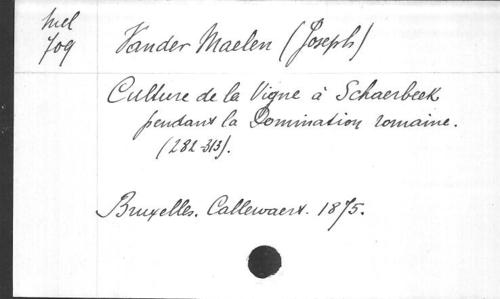 Mel
709
Vander Maelen (Joseph)
Culture de la Vigne à Schaerbeek
pendant la Domination romaine.
(282-313).
Bruxelles. Callewaert. 1875.